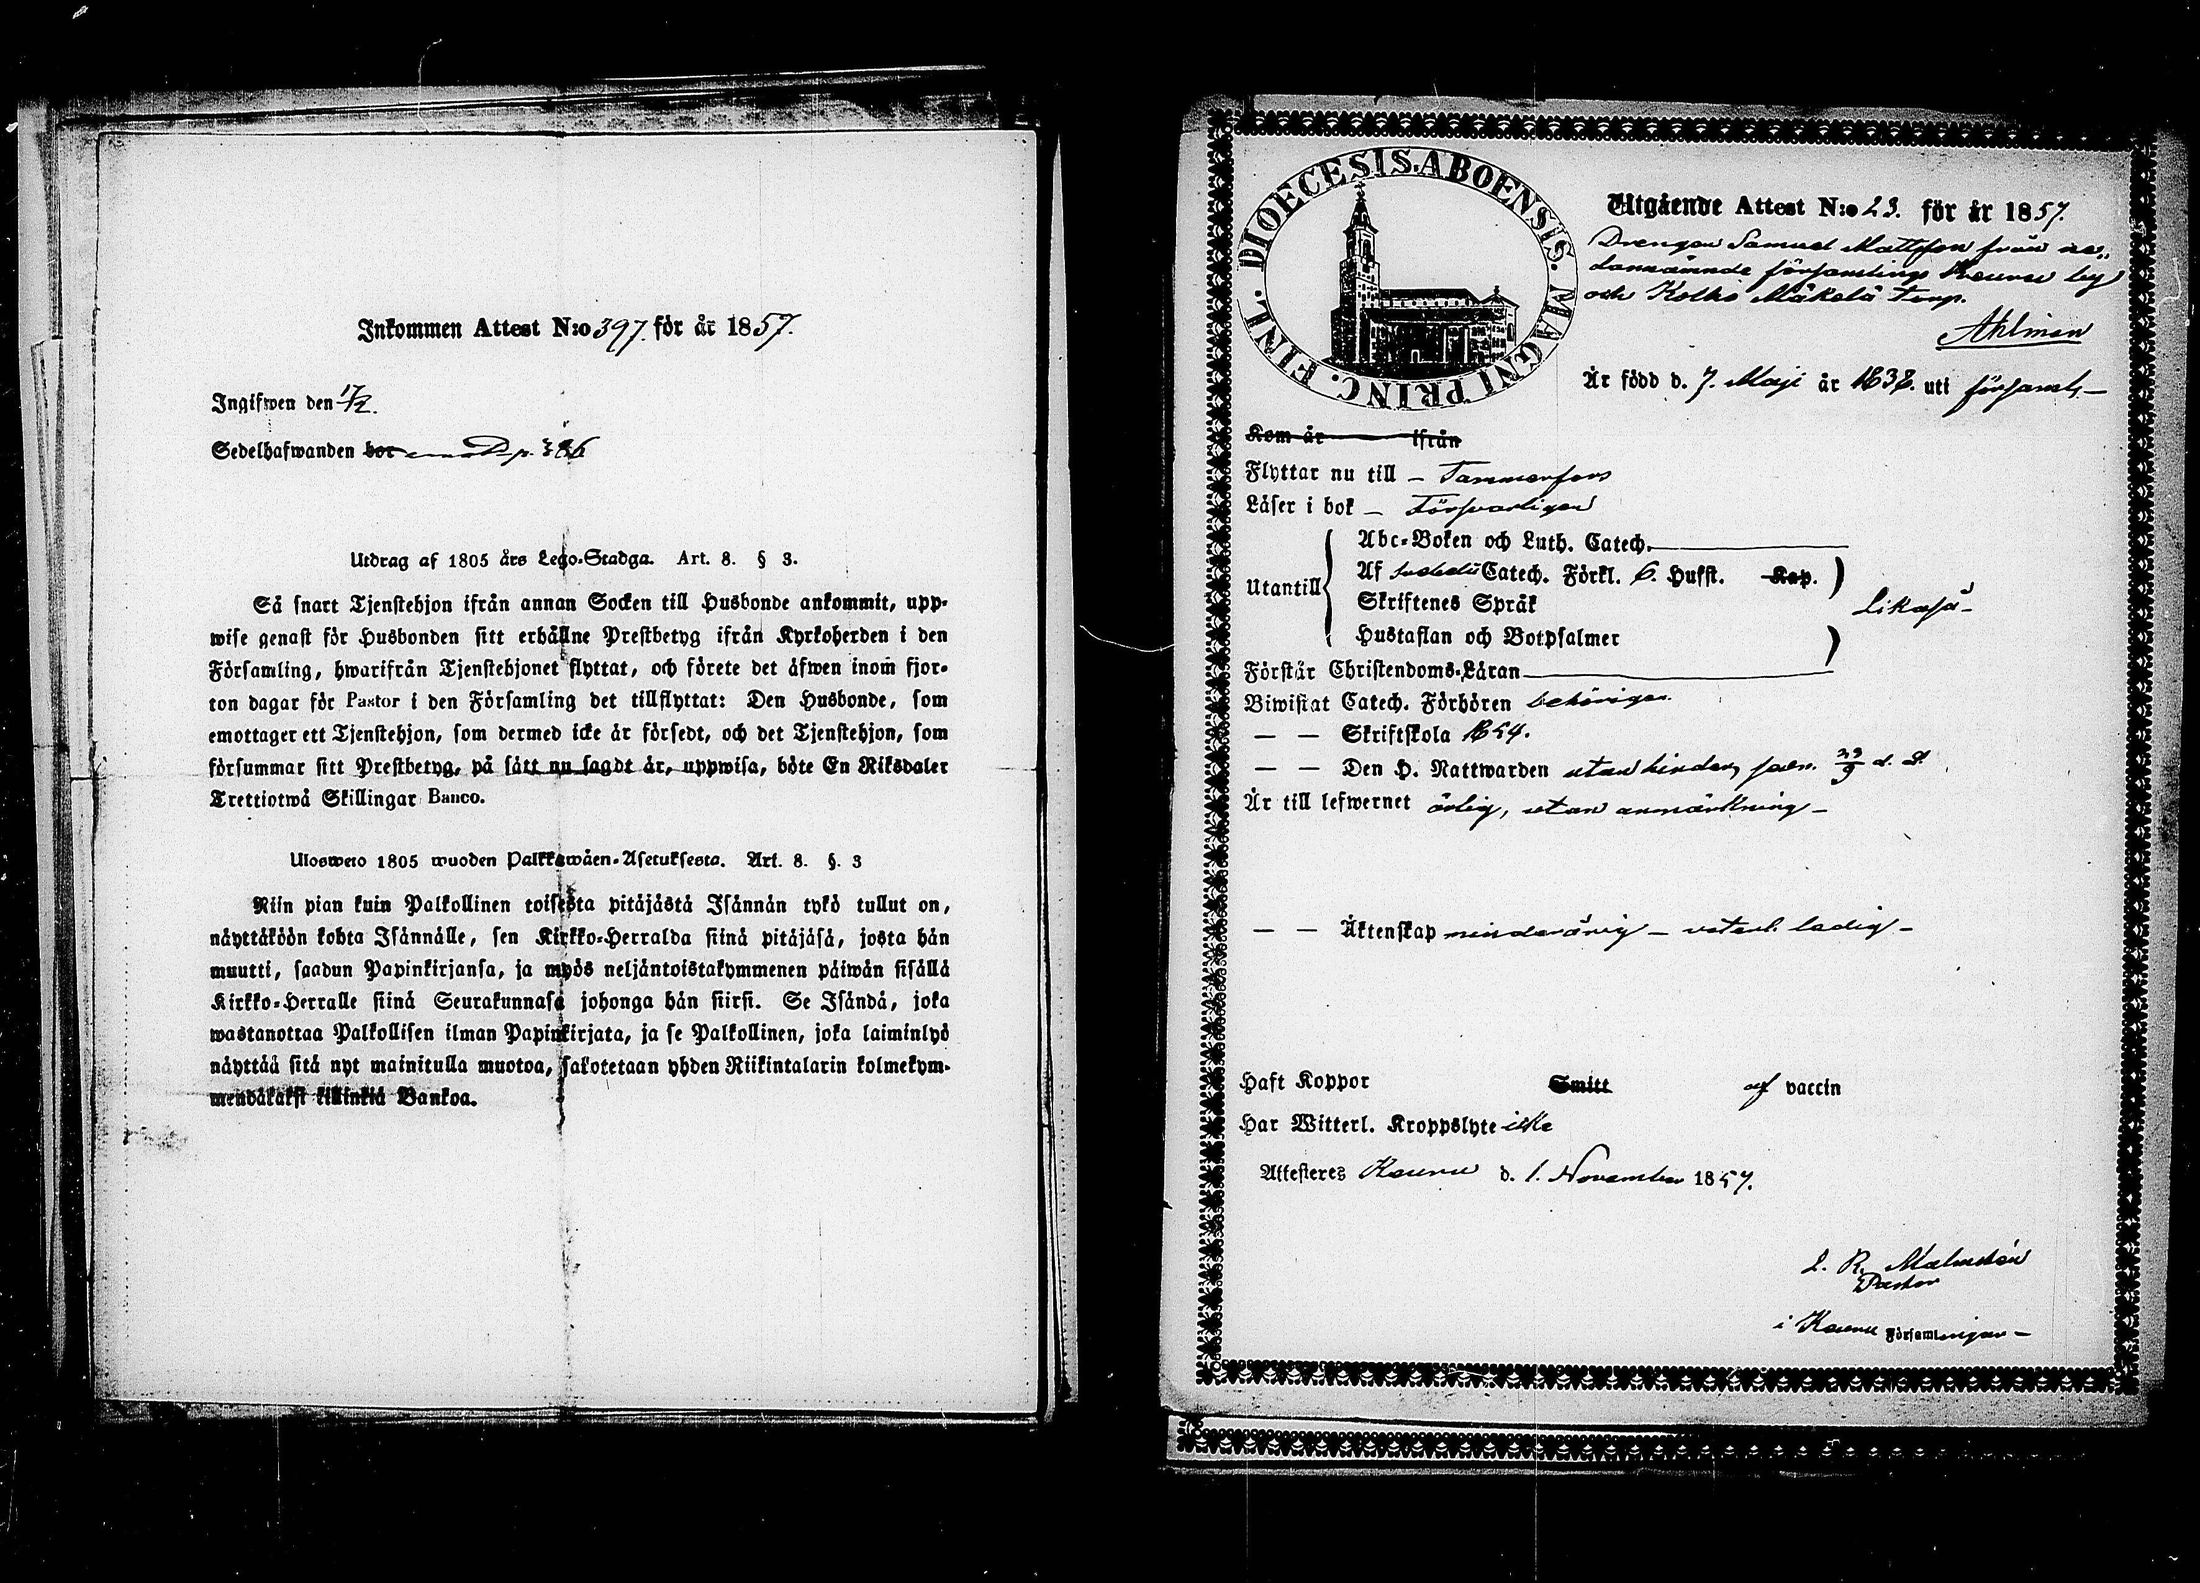 Inkommen Attest N:o 397. för år 1857.
Ingifwen den 17/12.
Sedelhafwanden bor p. 386
Utdrag af 1805 års Lego-Stadga. Art. 8. § 3.
Så snart Tjenstehjon ifrån annan Socken till Husbonde ankommit, upp-
wise genast för Husbonden sitt erhållne Prestbetyg ifrån Kyrkoherden i den
Församling, hwarifrån Tjenstehjonet flyttat, och förete det äfwen inom fjor-
ton dagar för Pastor i den Församling det tillflyttat: Den Husbonde, som
emottager ett Tjenstehjon, som dermed icke är försedt, och det Tjenstehjon, som
försummar sitt Prestbetyg, på sätt nu sagdt är, uppwisa, böte En Riksdaler
Trettiotwå Skillingar Banco.
Ulosweto 1805 wuoden Palkkawäen-Asetuksesta. Art. 8. §. 3
Niin pian kuin Palkollinen toisesta pitäjästä Isännän tykö tullut on,
näyttäköön kohta Isännälle, sen Kirkko-Herralda siinä pitäjäsä, josta hän
muutti, saadun Papinkirjansa, ja myös neljäntoistakymmenen päiwän sisällä
Kirkko-Herralle siinä Seurakunnasa johonga hän siirsi. Se Isändä, joka
wastanottaa Palkollisen ilman Papinkirjata, ja se Palkollinen, joka laiminlyö
näyttää sitä nyt mainitulla muotoa, sakotetaan yhden Riikintalarin kolmekym-
mendäkaksi killinkiä Bankoa.
DIOECESIS. ABOENSIS. MAGNI PRINC. FINL.
Utgående Attest N:o 23. för år 1857.
Drengen Samuel Mattsson från ne-
dannämnde församlings Keuru by
och Kolho Mäkelä Torp.
Ahlman
Är född d. 7. Maji år 1838. uti församl.
Kom år ifrån
Flyttar nu till Tammerfors
Läser i bok Försvarligen
Utantill
Abc-Boken och Luth. Catech.
Af Svebelii Catech. Förkl. 6. Hufst. Kap.
Skriftenes Språk
Likaså
Hustaflan och Botpsalmer
Förstår Christendoms-Läran
Biwistat Catech. Förhören behörigen
— — Skriftskola 1854.
— — Den H. Nattwarden utan hinder, d. å.
Är till lefwernet ärlig, utan anmärkning
— — Äktenskap minderårig — veterl. ledig
Haft Koppor Smitt af vaccin
Har Witterl. Kroppslyte icke
Attesteres Keuru d. 1. November 1857.
L. R. Malmstén
Pastor
i Keuru Församlingen